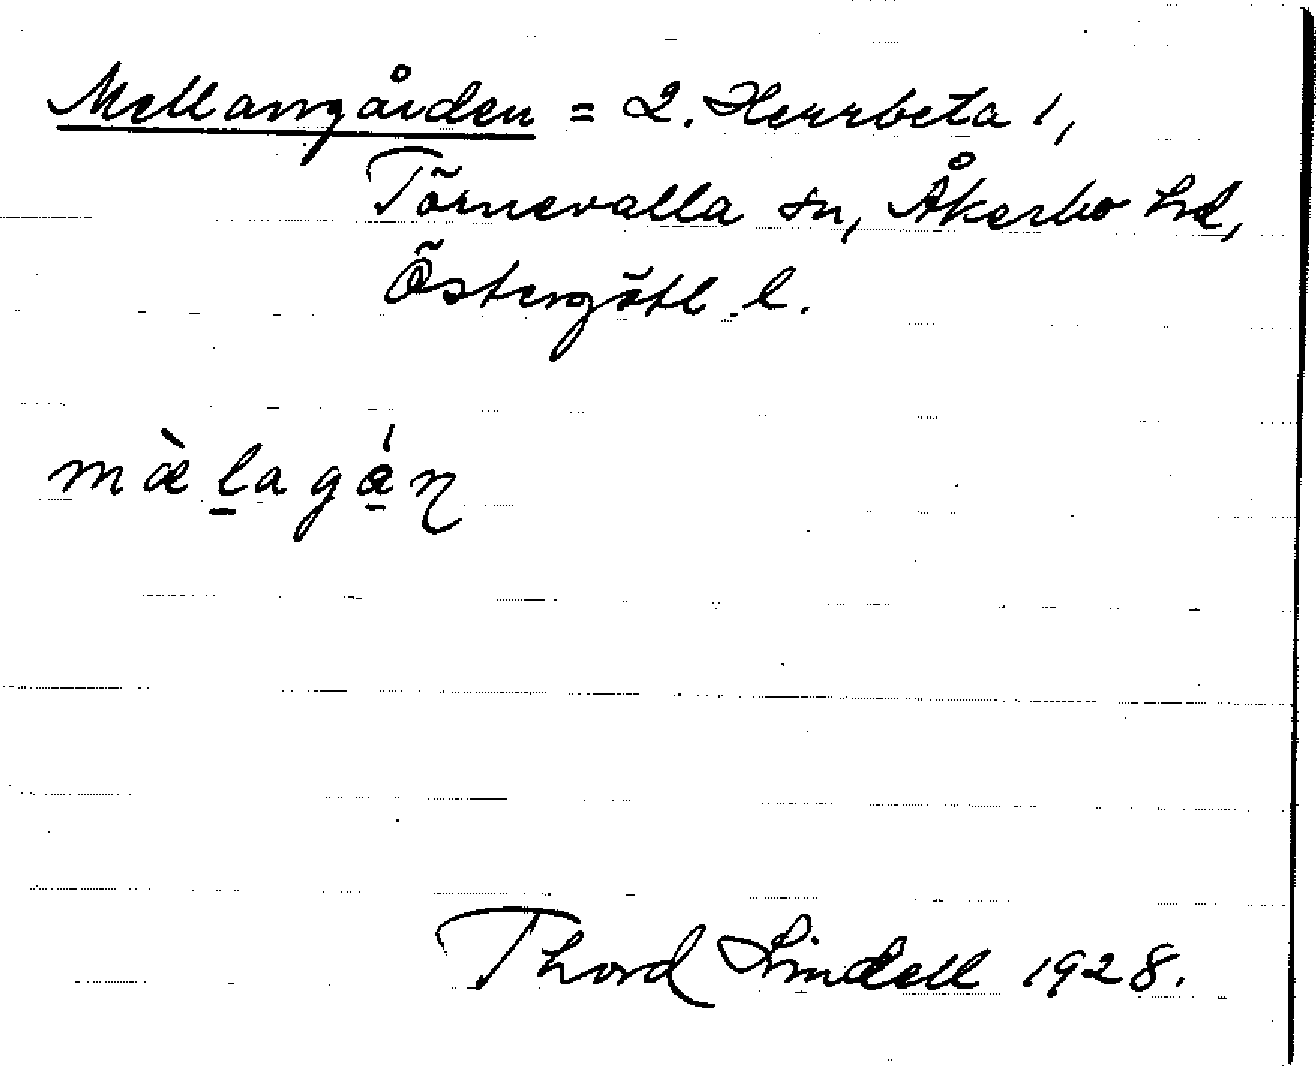 Mellangården = 2. Herrbeta 1,
Törnevalla sn, Åkerbo hd,
Östergötl. l.
mæ̀l̠agá̠ɳ
Thord Lindell 1928.